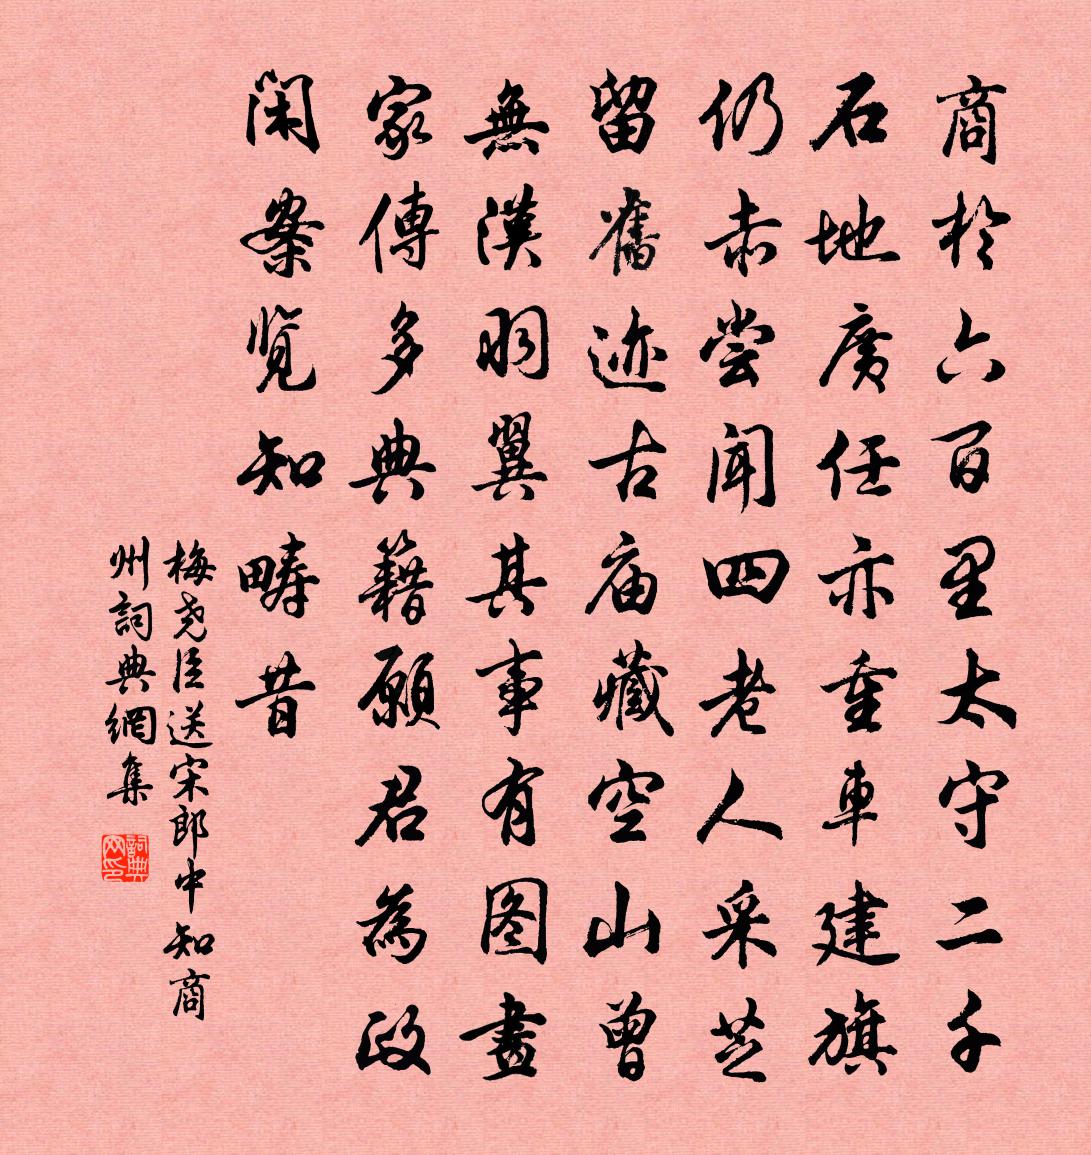 商於六百里太守二千
石地廣任亦重車建旗
仍赤尝聞四老人采芝
留舊迹古庙藏空山曾
無漢羽翼其事有图畫
家傳多典籍願君為政
閑案览知疇昔
梅尧臣送宋郎中知商
州詞典網集
詞典网印